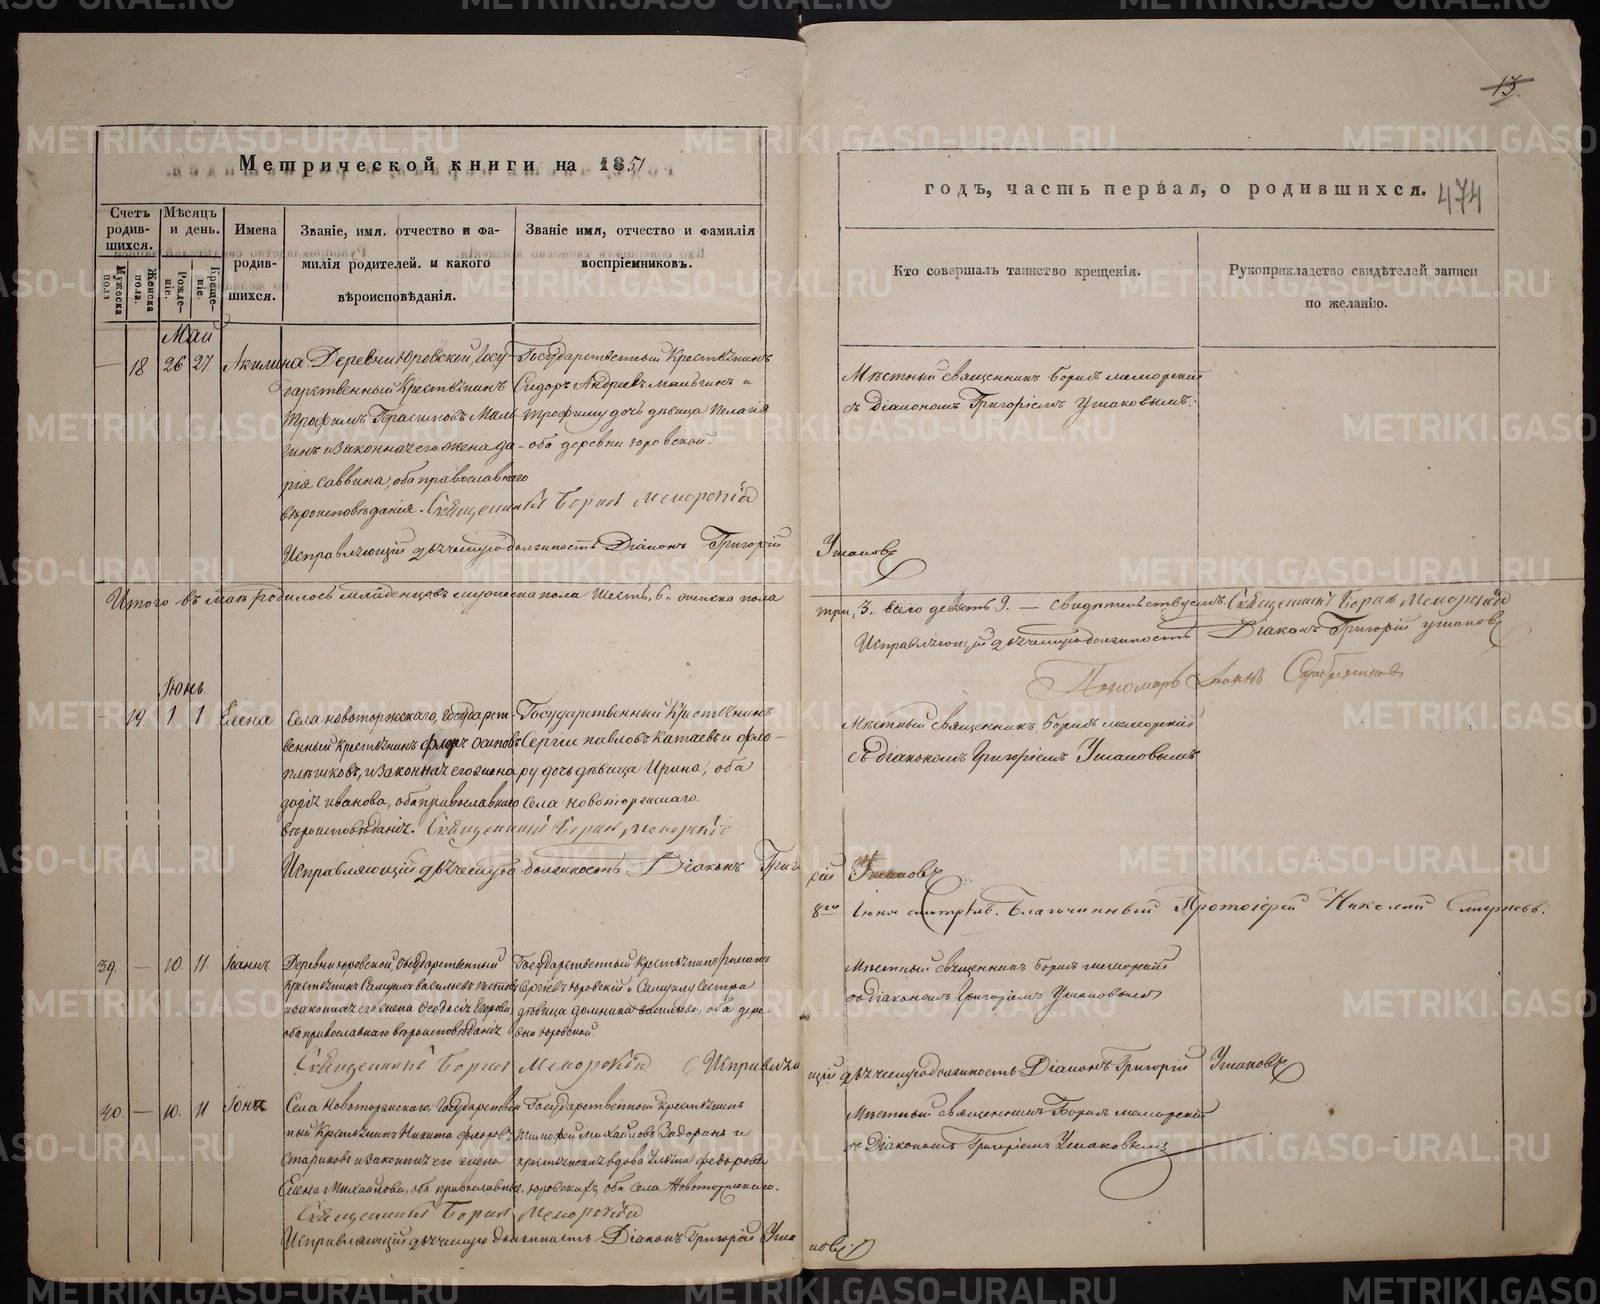 Метрической книги на 1851
годъ, часть первая, о родившихся.
474
13.
Счетъ родив-шихся.
Мужеска пола
Женска пола.
Мѣсяцъ и день.
Рожде-ніе.
Креще-ніе.
Имена родив-шихся.
Званіе, имя, отчество и фа-
милія родителей. и какого
вѣроисповѣданія.
Званіе имя, отчество и фамилія
воспріемниковъ.
Кто совершалъ таинство крещенія.
Рукоприкладство свидѣтелей записи
по желанію.
Май
18 26 27 Акилина
Деревни Юровской, Госу-
дарственный Крестьянинъ
Трофимъ Герасимовъ Маль-
гинъ и законная его жена Да-
рія Саввина, оба православнаго
вѣроисповѣданія.
Государственный Крестьянинъ
Сидоръ Андреевъ Мальгинъ и
Трофиму дочь дѣвица Пелагія
оба деревни Юровской.
Мѣстный священникъ Борисъ Меморскій
съ Діакономъ Григоріемъ Ушаковымъ.
Священникъ Борисъ Меморскій
Исправляющій дьяческую должность Діаконъ Григорій Ушаковъ
Итого въ маѣ родилось младенцовъ мужеска пола шесть, 6. женска пола
три, 3. всего девять 9. — свидѣтельствуемъ. Священникъ Борисъ Меморскій
Исправляющій дьяческую должность Діаконъ Григорій Ушаковъ
Пономарь Іоаннъ
Іюнь
19 1 1 Елена
Села Новоторжскаго, Государст-
венный крестьянинъ Флоръ Осиповъ
и законная его жена
Дарья Иванова, оба православнаго
вѣроисповѣданія.
Государственный Крестьянинъ
Сергій Павловъ Катаевъ и Фло-
ру дочь дѣвица Ирина, оба
села Новоторжскаго.
Мѣстный священникъ Борисъ Меморскій
съ діакономъ Григоріемъ Ушаковымъ
Священникъ Борисъ Меморскій
Исправляющій дьяческую должность Діаконъ Григорій Ушаковъ
8го Іюня смотрѣлъ. Благочинный Протоіерей Николай Смирновъ.
39. — 10. 11. Іоаннъ
Деревни Юровской, Государственный
крестьянинъ Самуилъ Васильевъ
и законная его жена Ѳеодосія Егорова,
оба православнаго вѣроисповѣданія
Государственный Крестьянинъ Романъ
Сергѣевъ Юровскій и Самуилу сестра
дѣвица Домника Васильева, оба дере-
вни Юровской.
Мѣстный священникъ Борисъ Меморскій
съ діакономъ Григоріемъ Ушаковымъ
Священникъ Борисъ Меморскій Исправляю
щій дьяческую должность Діаконъ Григорій Ушаковъ
40. — 10. 11 Іона
Села Новоторжскаго, Государствен
ный Крестьянинъ Никита Флоровъ
Стариковъ и законная его жена
Елена Михайлова, оба православны.
Государственный крестьянинъ
Тимофей Михайловъ Задоринъ и
крестьянская вдова Ульяна Федорова
Юровскихъ, оба села Новоторжскаго.
Мѣстный священникъ Борисъ Меморскій
съ Діакономъ Григоріемъ Ушаковымъ
Священникъ Борисъ Меморскій
Исправляющій дьяческую должность Діаконъ Григорій Уша
ковъ.
METRIKI.GASO-URAL.RU